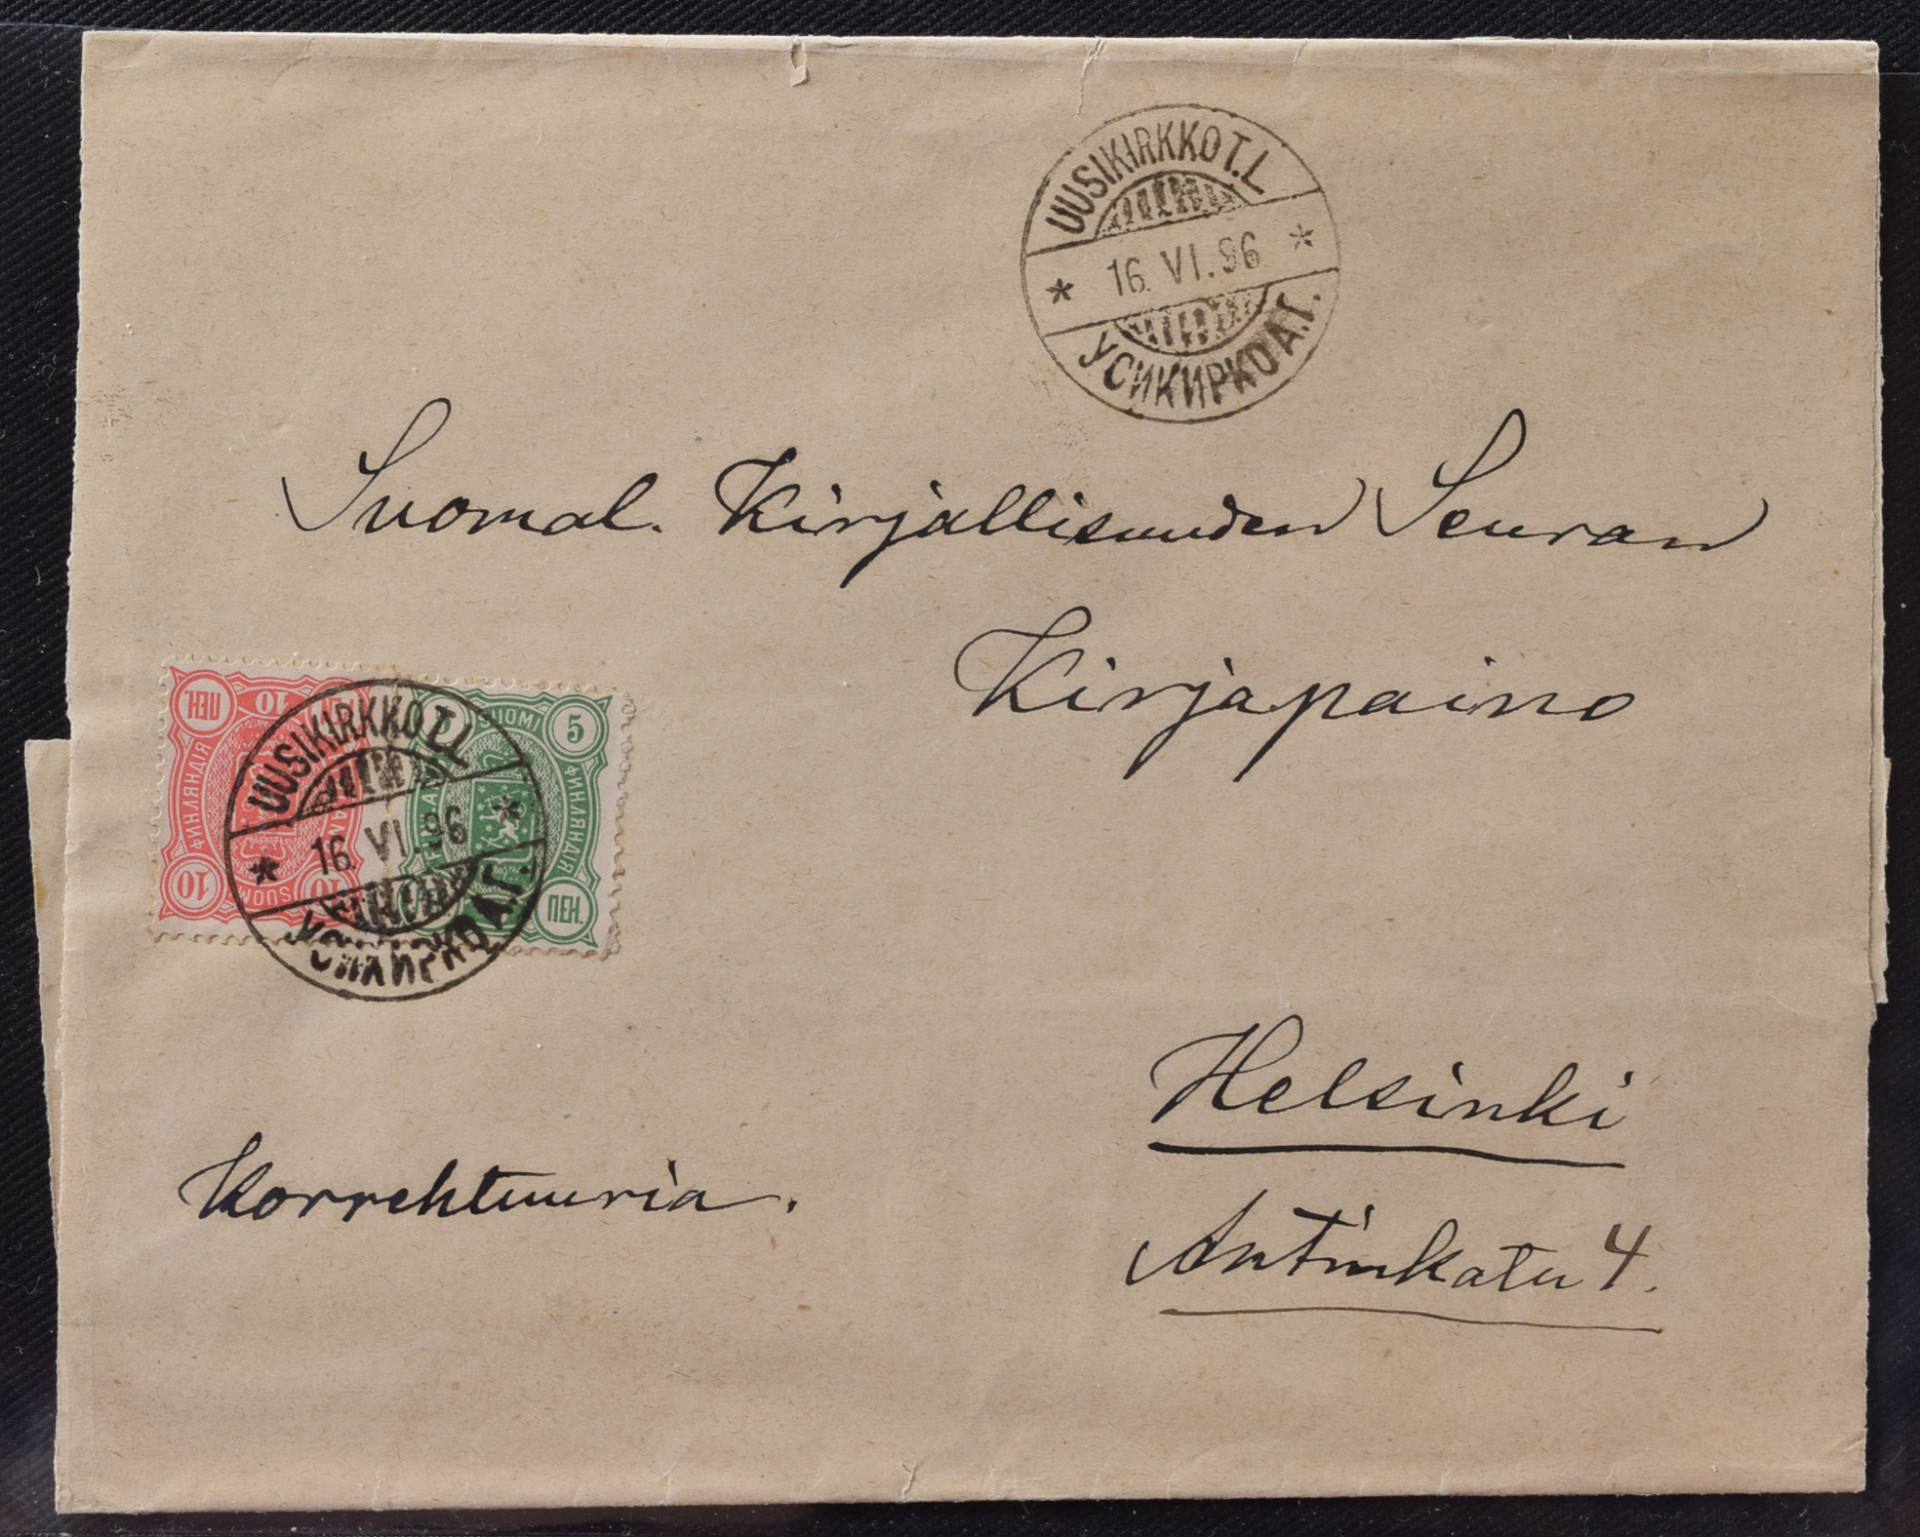 UUSIKIRKKO T.L
* 16. VI. 96 *
УСИКИРКО А.Г.
Suomal. Kirjallisuuden Seuran
Kirjapaino
ПЕН. 10
ФИНЛЯНДІЯ
10 SUOMI 10
SUOMI 5
FINLAND
ФИНЛЯНДІЯ
ПЕН.
UUSIKIRKKO T.L
* 16. VI. 96 *
УСИКИРКО А.Г.
Helsinki
Korrehtuuria.
Antinkatu 4.